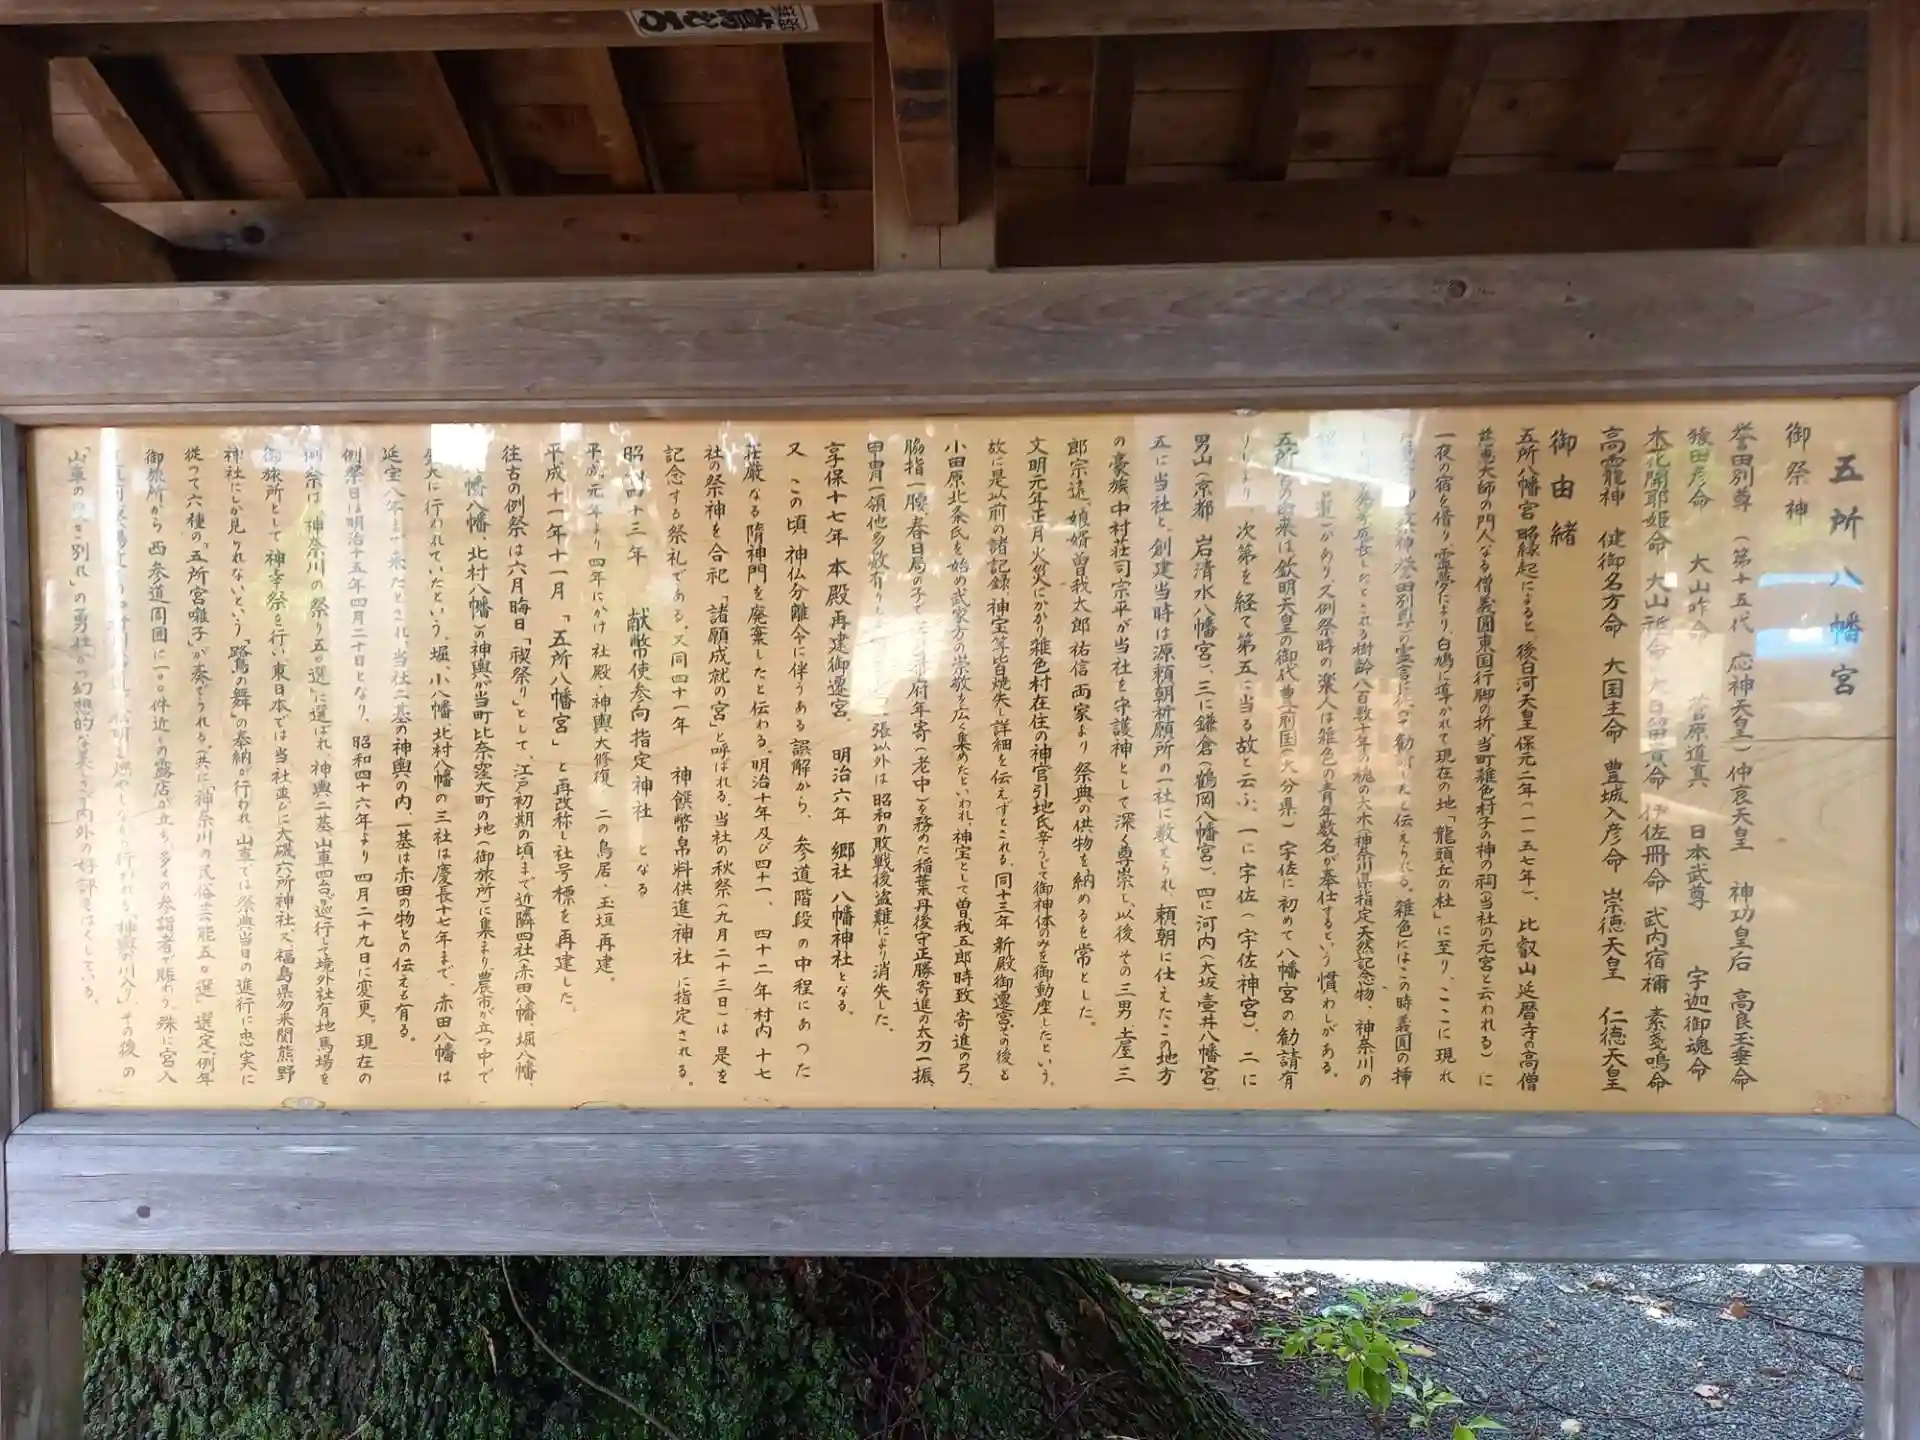 五所八幡宮
御祭神
誉田別尊 (第十五代 応神天皇) 仲哀天皇 神功皇后 高良玉垂命
猿田彦命 大山咋命 菅原道真 日本武尊 宇迦御魂命
木花開耶姫命 大山祗命 大日留貴命 伊佐冊命 武内宿禰 素戔鳴命
高龗神 健御名方命 大国主命 豊城入彦命 崇徳天皇 仁徳天皇
御由緒
五所八幡宮略縁起によると 後白河天皇保元二年(一一五七年)、比叡山延暦寺の高僧
慈恵大師の門人なる僧義圓東国行脚の折、当町雑色村子の神の祠(当社の元宮と云われる)に
一夜の宿を借り、霊夢により、白鳩に導かれて現在の地「龍頭丘の杜」に至り、ここに現れ
誉田別尊の霊言に 勧 したと伝えられる。雑色にはこの時義圓の挿
成長したとされる樹齢八百数十年の槐の大木(神奈川県指定天然記念物、神奈川の
があり、又例祭時の楽人は雑色の青年数名が奉仕するという慣わしがある。
五所 の由来は欽明天皇の御代豊前国(大分県)宇佐に初めて八幡宮の勧請有
りしより、次第を経て第五に当る故と云ふ。一に宇佐(宇佐神宮)、二に
男山(京都 岩清水八幡宮)、三に鎌倉(鶴岡八幡宮)、四に河内(大坂壺井八幡宮)
五に当社と。創建当時は源頼朝祈願所の一社に数えられ、頼朝に仕えたこの地方
の豪族 中村荘司宗平が当社を守護神として深く尊崇し、以後その三男 土屋三
郎宗遠、娘婿曽我太郎祐信両家より祭典の供物を納めるを常とした。
文明元年正月火災にかかり雑色村在住の神官引地氏辛うじて御神体のみを御動座したという。
故に是以前の諸記録、神宝等皆焼失し詳細を伝えずとされる。同十三年新殿御遷宮、その後も
小田原北条氏を始め武家方の崇敬を広く集めたといわれ、神宝として曽我五郎時致寄進の弓、
脇指一腰、春日局の子で 府年寄(老中)を務めた稲葉丹後守正勝寄進の太刀一振
甲冑一領他多数有り 張以外は昭和の敗戦後盗難により消失した。
享保十七年 本殿再建御遷宮、明治六年 郷社 八幡神社となる。
又、この頃神仏分離令に伴うある誤解から、参道階段の中程にあった
荘厳なる隋神門を廃棄したと伝わる。明治十年及び四十一、四十二年村内十七
社の祭神を合祀「諸願成就の宮」と呼ばれる。当社の秋祭(九月二十三日)は是を
記念する祭礼である。又同四十一年 神饌幣帛料供進神社に指定される。
昭和四十三年 献幣使参向指定神社 となる
平成元年より四年にかけ社殿、神輿大修復 二の鳥居、玉垣再建。
平成十一年十一月「五所八幡宮」と再改称し社号標を再建した。
往古の例祭は六月晦日「禊祭り」として、江戸初期の頃まで近隣四社(赤田八幡、堀八幡、
幡八幡、北村八幡)の神輿が当町比奈窪大町の地(御旅所)に集まり、農市が立つ中で
大に行われていたという。堀、小八幡、北村八幡の三社は慶長十七年まで、赤田八幡は
延宝八年まで来たとされ、当社二基の神輿の内、一基は赤田の物との伝えも有る。
例祭日は明治十五年四月二十日となり、昭和四十六年より四月二十九日に変更。現在の
例祭は、神奈川の祭り五〇選に選ばれ、神輿二基山車四台が巡行して境外社有地馬場を
御旅所として神幸祭を行い、東日本では当社並びに大磯六所神社、又、福島県勿来関熊野
神社にしか見られないという「鷺の舞」の奉納が行われ、山車では祭典当日の進行に忠実に
従って六種の「五所宮囃子」が奏でられる。(共に「神奈川の民俗芸能五〇選」選定)例年
御旅所から西参道周囲に一〇〇件近くの露店が立ち、多くの参詣者で賑わう。殊に宮入
燃やしながら行われる「神輿の川入り」その後の
「山車の 別れ」の勇壮かつ幻想的な美しさで内外の好評をはくしている。